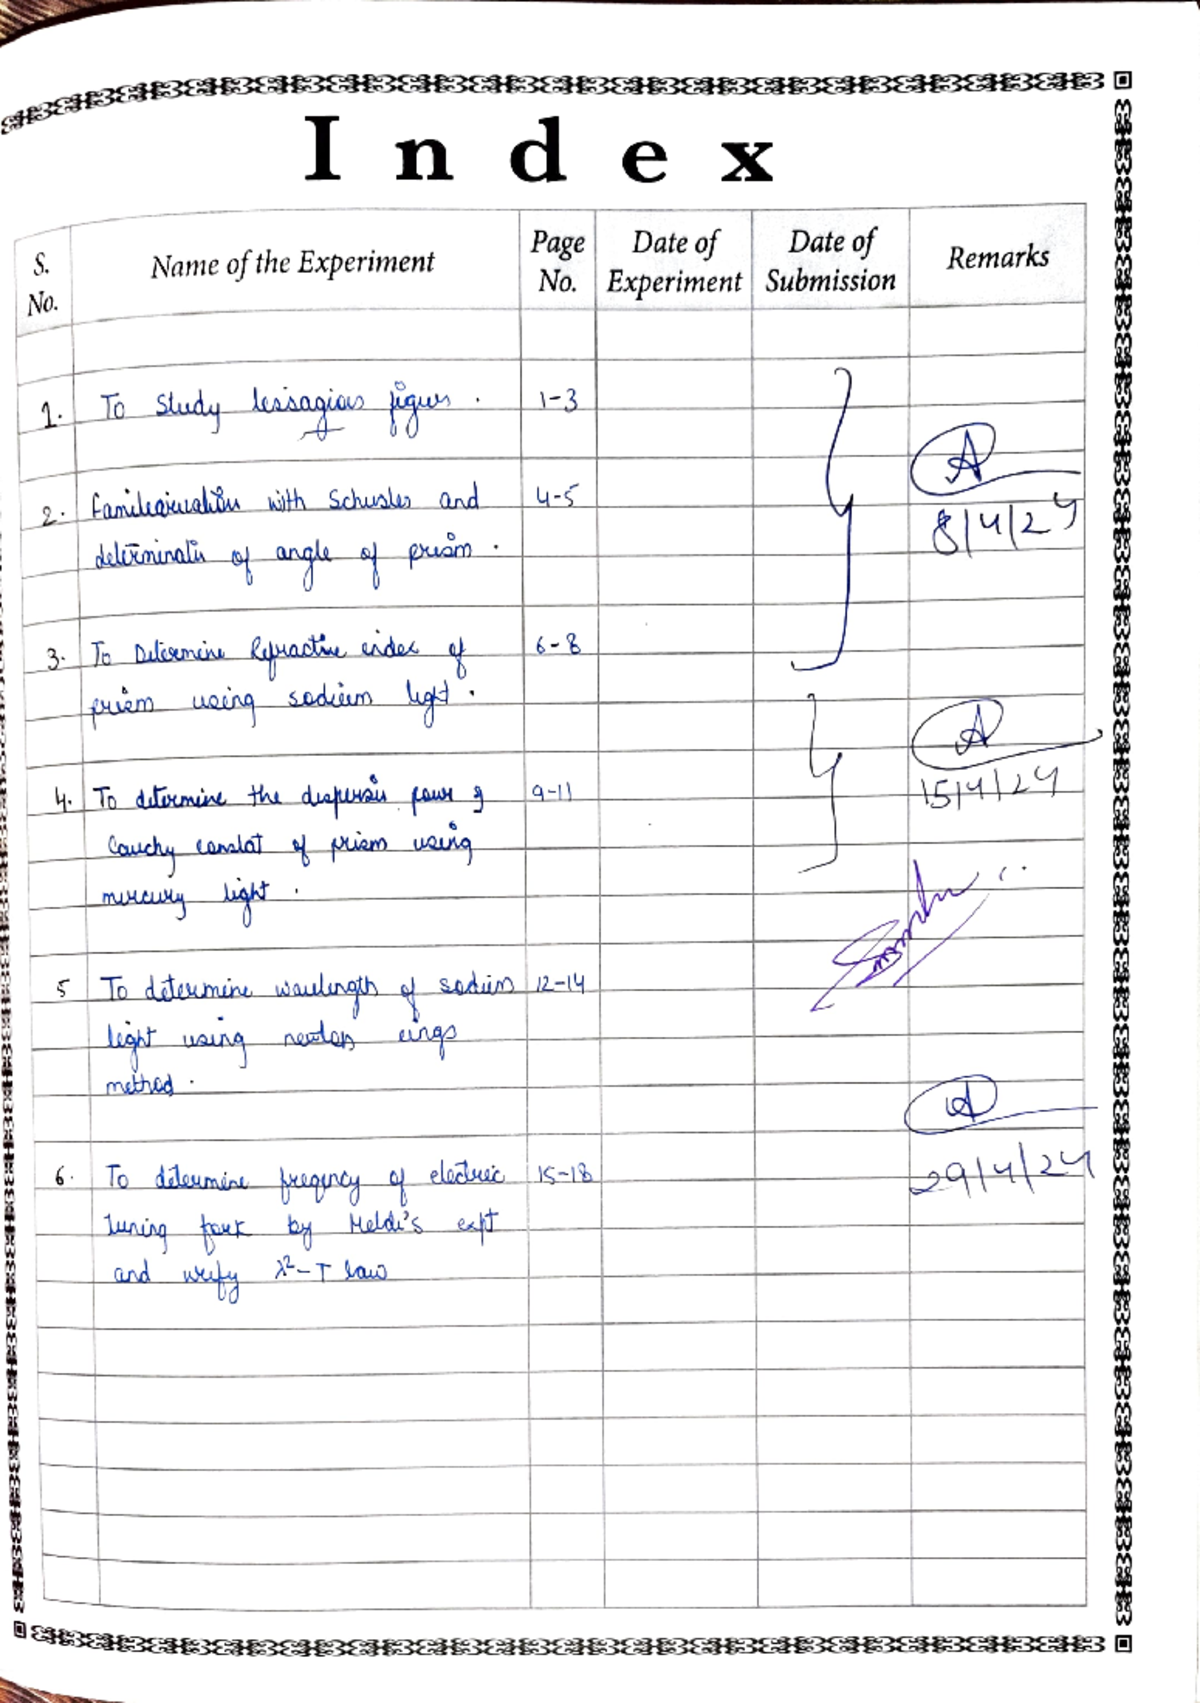 Index
S. No. Name of the Experiment Page No. Date of Experiment Date of Submission Remarks
1. To Study lessagious figures. 1-3
A
2. Familiarization with Schusler and 4-5
8/4/24
determinatin of angle of prism.
3. To Determine Refractive index of 6-8
prism using sodium light.
A
4. To determine the dispersin power & 9-11
15/4/24
Cauchy constat of prism using
mercury light.
5 To determine wavelength of sodium 12-14
light using newton rings
method.
A
6. To determine freqency of electric 15-18
29/4/24
tuning fork by Melde's expt
and verify λ²-T law